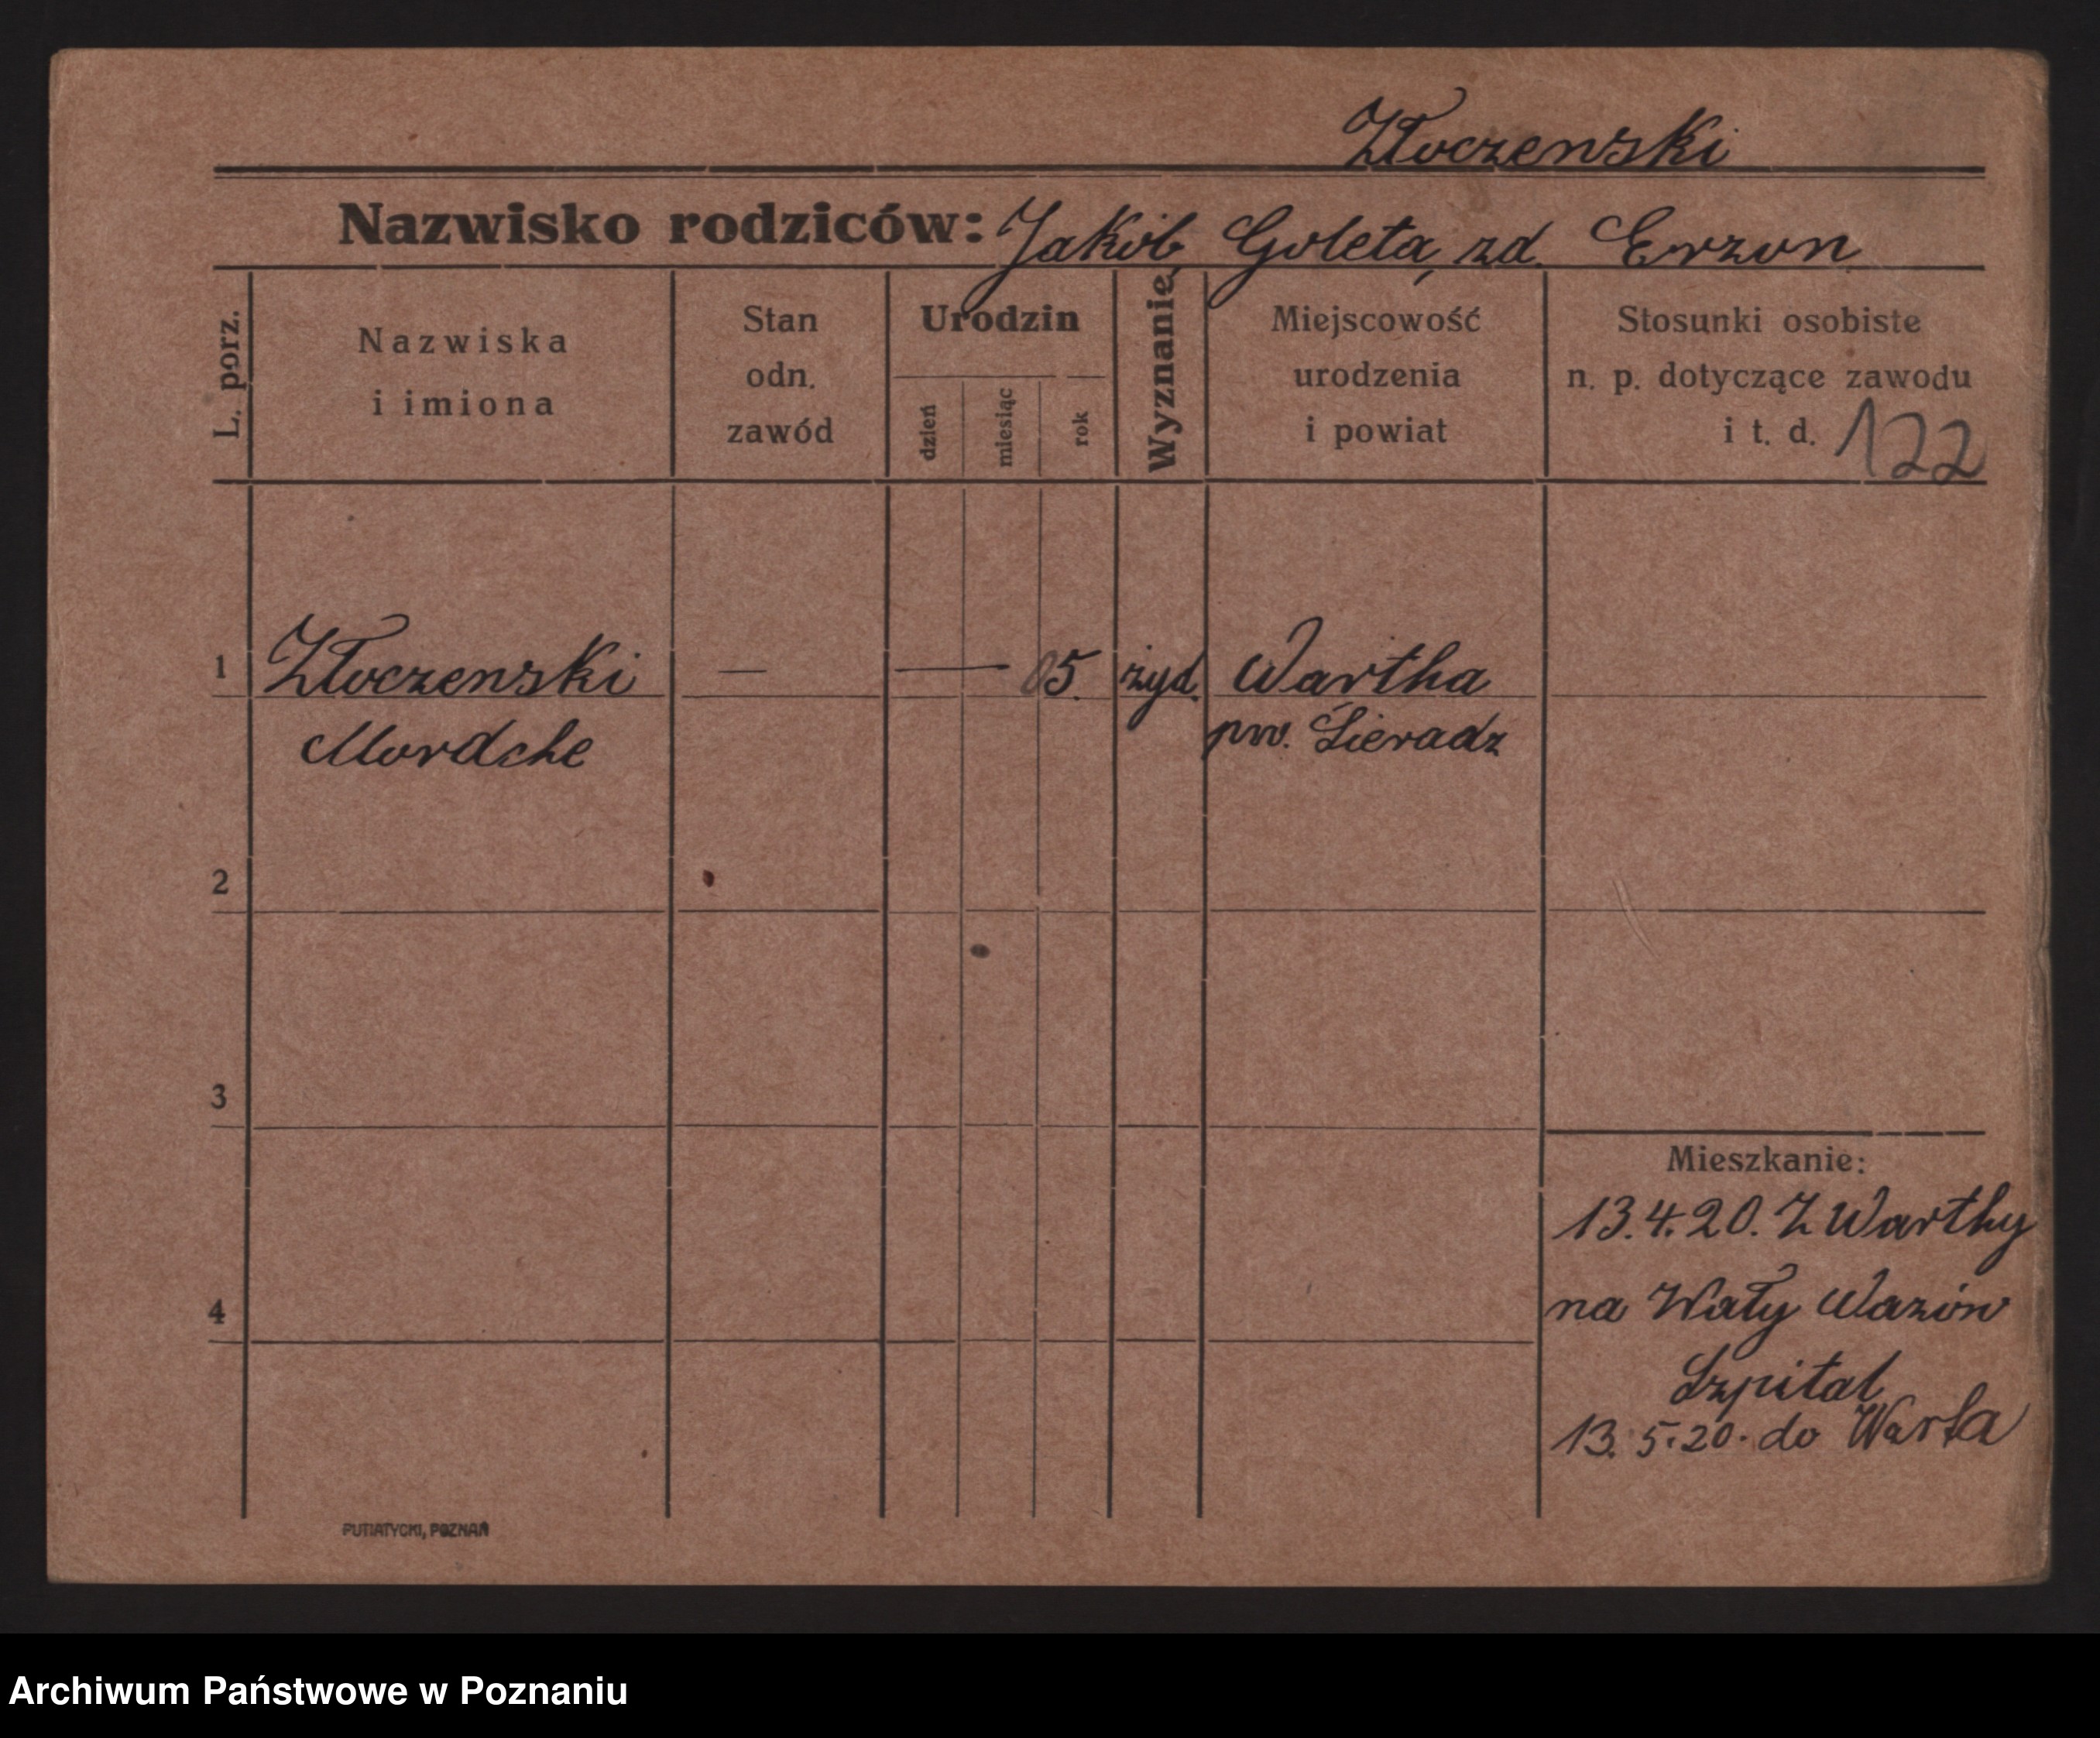 Złoczenski
Nazwisko rodziców: Jakób, Goleta, zd. Erzon
L. porz.
Nazwiska
i imiona
Stan
odn.
zawód
Urodzin
dzień
miesiąc
rok
Wyznanie
Miejscowość
urodzenia
i powiat
Stosunki osobiste
n. p. dotyczące zawodu
i t. d. 122
1 Złoczenski — — 05. żyd. Wartha
Mordche pw. Sieradz
2
3
Mieszkanie:
13.4.20. Z Warthy
4 na Wały Wazów
Szpital
13. 5.20. do Warta
PUTIATYCKI, POZNAŃ
Archiwum Państwowe w Poznaniu